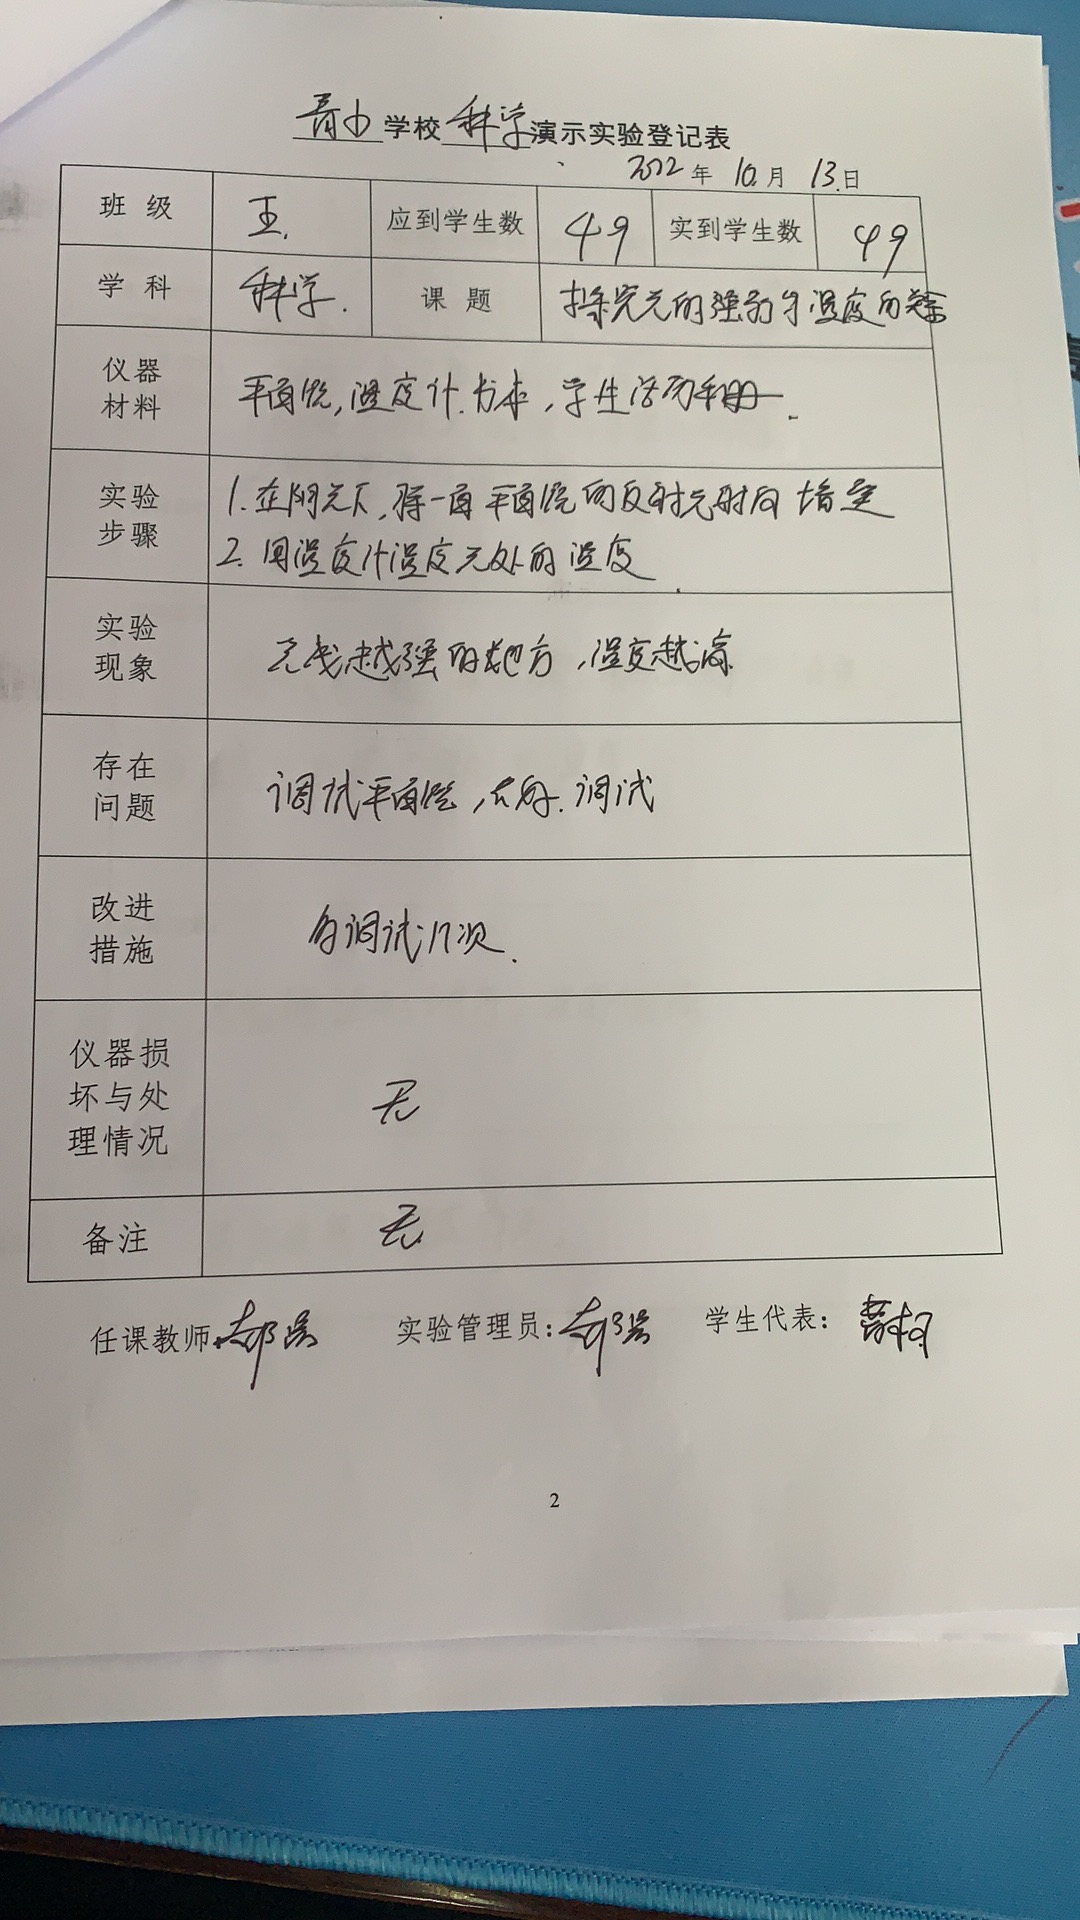 青小学校科学演示实验登记表
2022年10月13日
班级 五. 应到学生数 49 实到学生数 49
学科 科学. 课题 探究光的强弱与温度的关系
仪器材料 平面镜,温度计.书本,学生活动手册.
实验步骤 1.在阳光下,将一面平面镜的反射光射向墙壁
2.用温度计温度光处的温度
实验现象 光线越强的地方,温度越高
存在问题 调试平面镜,大好.调试
改进措施 多调试几次.
仪器损坏与处理情况 无
备注 无.
任课教师: 实验管理员: 学生代表:
2